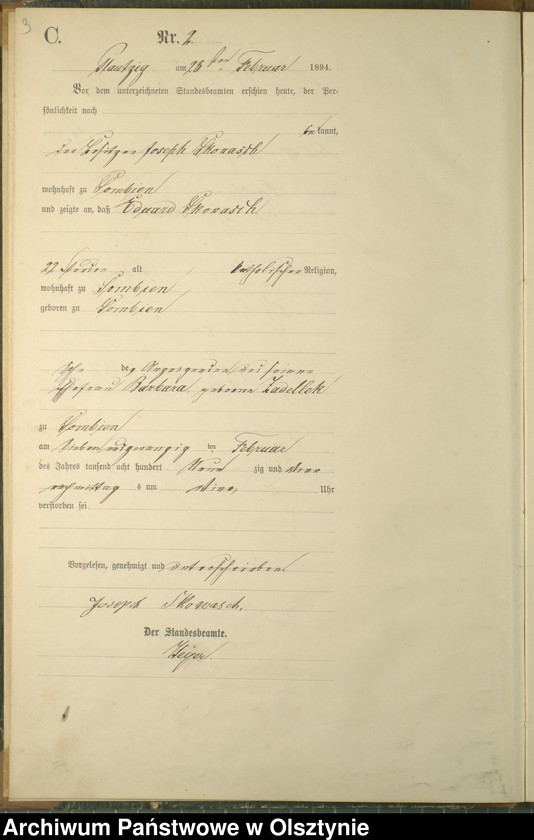 3
C. Nr. 2.
Plautzig am 28 ten Februar 1894.
Vor dem unterzeichneten Standesbeamten erschien heute, der Per-
sönlichkeit nach
bekannt,
der Besitzer Joseph Skowasch
wohnhaft zu Dombien
und zeigte an, daß Eduard Skowasch
22 alt katholischer Religion,
wohnhaft zu Dombien
geboren zu Dombien
Sohn des seiner
Ehefrau Barbara geborene Zadellek
zu Dombien
am sieben und zwanzig ten Februar
des Jahres tausend acht hundert Neun zig und vier
nachmittags um Uhr
verstorben sei
Vorgelesen, genehmigt und unterschrieben
Joseph Skowasch.
Der Standesbeamte.
Archiwum Państwowe w Olsztynie